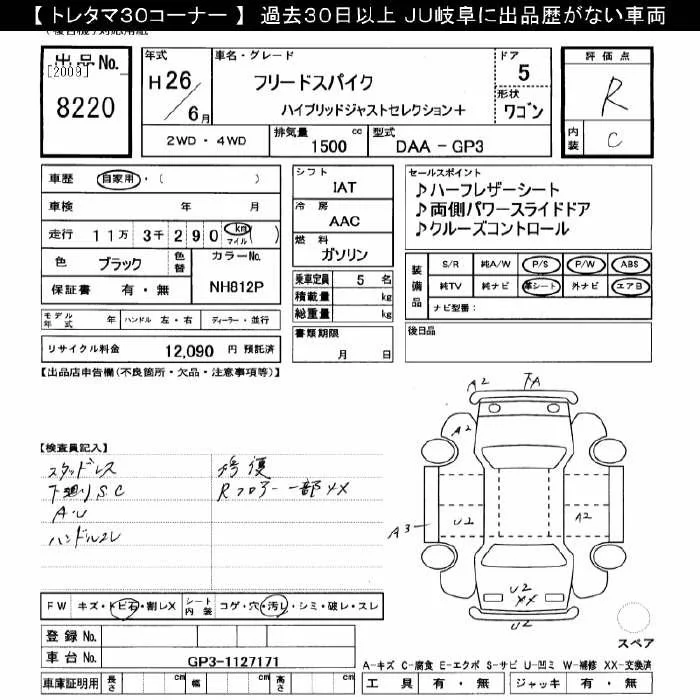 【 トレタマ30コーナー 】 過去30日以上 JU岐阜に出品歴がない車両
出品No.
[2009]
8220
年式
H 26 / 6月
車名・グレード
フリードスパイク
ハイブリッドジャストセレクション+
ドア
5
形状
ワゴン
2WD・4WD
排気量 1500 cc
型式 DAA - GP3
評価点
R
内装 C
車歴 自家用・( )
車検 年 月
走行 11万 3千 290 km マイル ( )
色 ブラック 色替 カラーNo.
保証書 有・無 NH812P
モデル年式 年 ハンドル 左・右 ディーラー・並行
リサイクル料金 12,090 円 預託済
シフト
IAT
冷房
AAC
燃料
ガソリン
乗車定員 5 名
積載量 kg
総重量 kg
書類期限
月 日
セールスポイント
♪ハーフレザーシート
♪両側パワースライドドア
♪クルーズコントロール
装備品
S/R 純A/W P/S P/W ABS
純TV 純ナビ 革シート 外ナビ エアB
ナビ型番:
後日品
【出品店申告欄(不良箇所・欠品・注意事項等)】
【検査員記入】
スタッドレス
下廻りS.C
A.U
ハンドルスレ
修復
Rフロアー一部XX
A2 下A
A2
A3 U2 A2
U2
XX
U2
スペア
FW キズ・トビ石・割レX シート内装 コゲ・穴・汚レ・シミ・破レ・スレ
登録No.
車台No. GP3-1127171
車庫証明用 長さ cm 幅 cm 高さ cm
A-キズ C-腐食 E-エクボ S-サビ U-凹ミ W-補修 XX-交換済
工具 有・無 ジャッキ 有・無